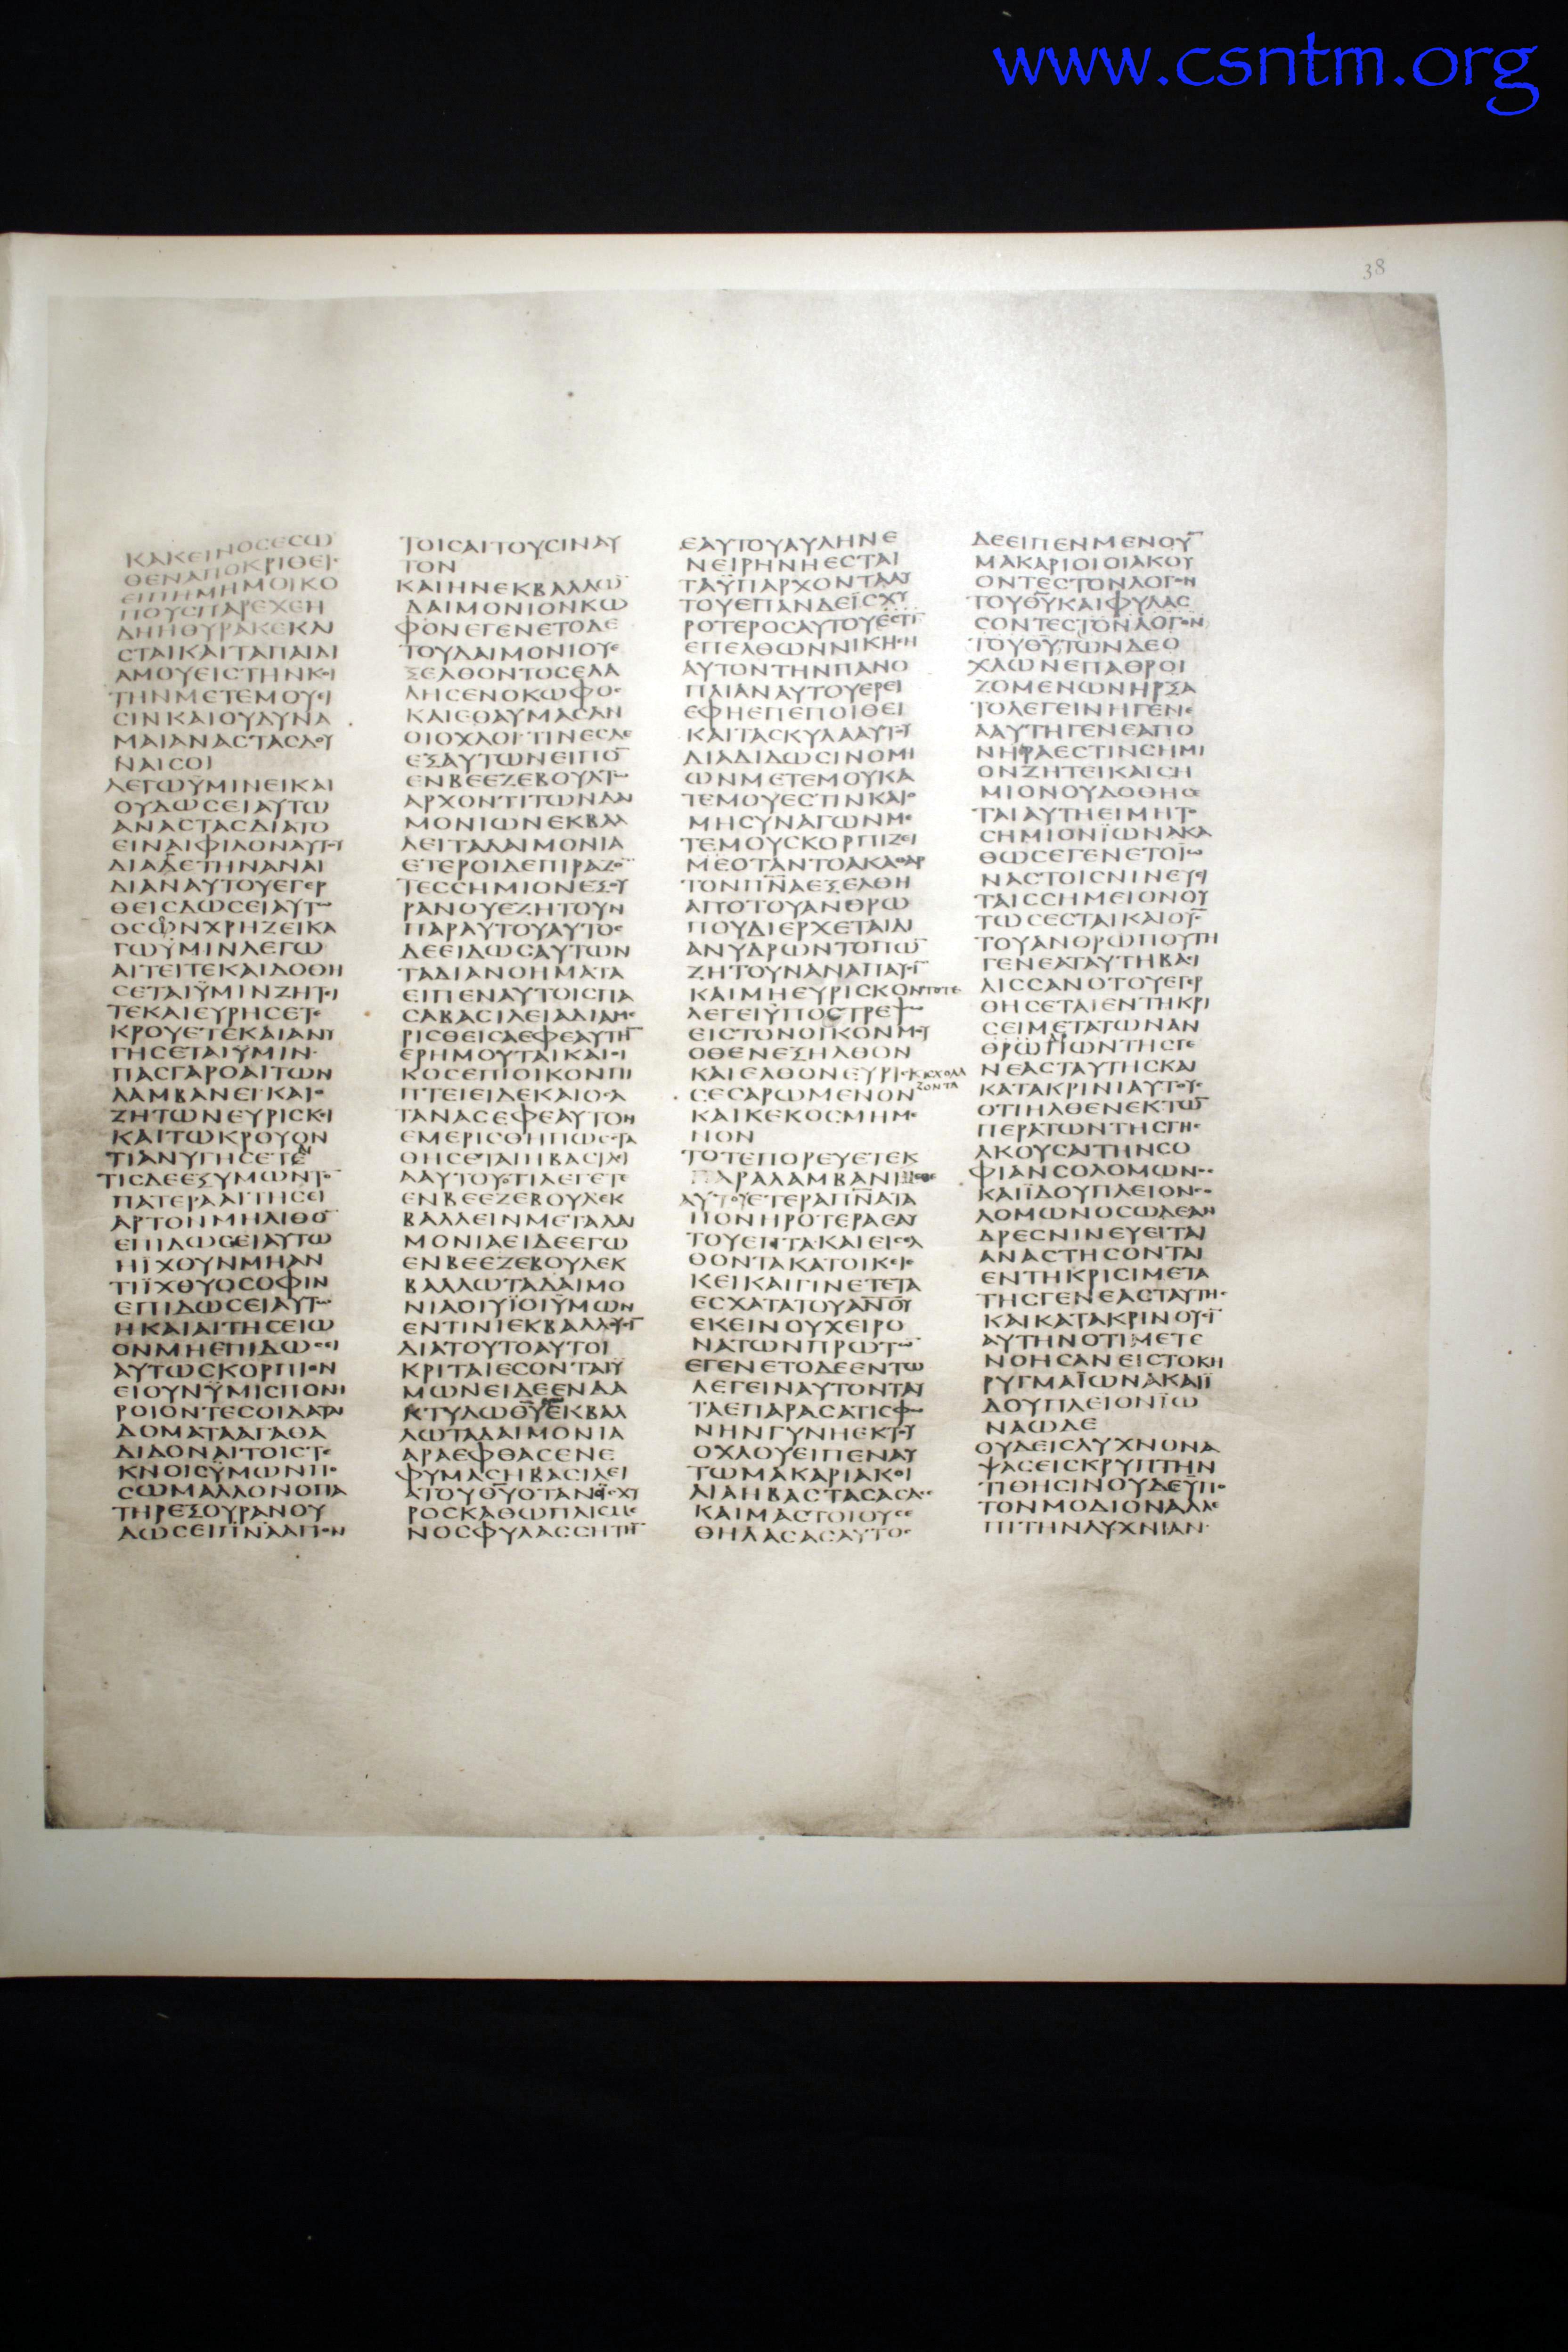 www.csntm.org
38
ΚΑΚΕΙΝΟCΕCΩ
ΘΕΝΑΠΟΚΡΙΘΕΙC
ΕΙΠΗΜΗΜΟΙΚΟ
ΠΟΥCΠΑΡΕΧΕΗ
ΔΗΗΘΥΡΑΚΕΚΛΙ
CΤΑΙΚΑΙΤΑΠΑΙΔΙ
ΑΜΟΥΕΙCΤΗΝΚΟΙ
ΤΗΝΜΕΤΕΜΟΥΕΙ
CΙΝΚΑΙΟΥΔΥΝΑ
ΜΑΙΑΝΑCΤΑCΔΟΥ
ΝΑΙCΟΙ
ΛΕΓΩΫΜΙΝΕΙΚΑΙ
ΟΥΔΩCΕΙΑΥΤΩ
ΑΝΑCΤΑCΔΙΑΤΟ
ΕΙΝΑΙΦΙΛΟΝΑΥΤΟΥ
ΔΙΑΔΕΤΗΝΑΝΑΙ
ΔΙΑΝΑΥΤΟΥΕΓΕΡ
ΘΕΙCΔΩCΕΙΑΥΤΩ
ΟCΩΝΧΡΗΖΕΙΚΑ
ΓΩΫΜΙΝΛΕΓΩ
ΑΙΤΕΙΤΕΚΑΙΔΟΘΗ
CΕΤΑΙΫΜΙΝΖΗΤΕΙ
ΤΕΚΑΙΕΥΡΗCΕΤΕ
ΚΡΟΥΕΤΕΚΑΙΑΝΥ
ΓΗCΕΤΑΙΫΜΙΝ
ΠΑCΓΑΡΟΑΙΤΩΝ
ΛΑΜΒΑΝΕΙΚΑΙΟ
ΖΗΤΩΝΕΥΡΙCΚΕΙ
ΚΑΙΤΩΚΡΟΥΟΝ
ΤΙΑΝΥΓΗCΕΤΕ
ΤΙCΔΕΕΞΥΜΩΝΤΟ̅
ΠΑΤΕΡΑΑΙΤΗCΕΙ
ΑΡΤΟΝΜΗΛΙΘΟ̅
ΕΠΙΔΩCΕΙΑΥΤΩ
ΗΙΧΟΥΝΜΗΑΝ
ΤΙΪΧΘΥΟCΟΦΙΝ
ΕΠΙΔΩCΕΙΑΥΤΩ
ΗΚΑΙΑΙΤΗCΕΙΩ
ΟΝΜΗΕΠΙΔΩCΕΙ
ΑΥΤΩCΚΟΡΠΙΟΝ
ΕΙΟΥΝΫΜΙCΠΟΝΗ
ΡΟΙΟΝΤΕCΟΙΔΑΤΑΙ
ΔΟΜΑΤΑΑΓΑΘΑ
ΔΙΔΟΝΑΙΤΟΙCΤΕ
ΚΝΟΙCΫΜΩΝΠΟ
CΩΜΑΛΛΟΝΟΠΑ
ΤΗΡΕΞΟΥΡΑΝΟΥ
ΔΩCΕΙΠΝΑΑΓΙΟΝ
ΤΟΙCΑΙΤΟΥCΙΝΑΥ
ΤΟΝ
ΚΑΙΗΝΕΚΒΑΛΛΩ̅
ΔΑΙΜΟΝΙΟΝΚΩ
ΦΟΝΕΓΕΝΕΤΟΔΕ
ΤΟΥΔΑΙΜΟΝΙΟΥΕ
ΞΕΛΘΟΝΤΟCΕΛΑ
ΛΗCΕΝΟΚΩΦΟC
ΚΑΙΕΘΑΥΜΑCΑΝ
ΟΙΟΧΛΟΙΤΙΝΕCΔΕ
ΕΞΑΥΤΩΝΕΙΠΟ̅
ΕΝΒΕΕΖΕΒΟΥΛΤΩ
ΑΡΧΟΝΤΙΤΩΝΔΑΙ
ΜΟΝΙΩΝΕΚΒΑΛ
ΛΕΙΤΑΔΑΙΜΟΝΙΑ
ΕΤΕΡΟΙΔΕΠΙΡΑΖΟ̅
ΤΕCCΗΜΙΟΝΕΞΟΥ
ΡΑΝΟΥΕΖΗΤΟΥΝ
ΠΑΡΑΥΤΟΥΑΥΤΟC
ΔΕΕΙΔΩCΑΥΤΩΝ
ΤΑΔΙΑΝΟΗΜΑΤΑ
ΕΙΠΕΝΑΥΤΟΙCΠΑ
CΑΒΑCΙΛΕΙΑΔΙΑΜΕ
ΡΙCΘΕΙCΑΕΦΕΑΥΤΗ̅
ΕΡΗΜΟΥΤΑΙΚΑΙΟΙ
ΚΟCΕΠΙΟΙΚΟΝΠΙ
ΠΤΕΙΕΙΔΕΚΑΙΟCΑ
ΤΑΝΑCΕΦΕΑΥΤΟΝ
ΕΜΕΡΙCΘΗΠΩCCΤΑ
ΘΗCΕΤΑΙΗΒΑCΙΛΕΙ
ΑΑΥΤΟΥΟΤΙΛΕΓΕΤΕ
ΕΝΒΕΕΖΕΒΟΥΛΕΚ
ΒΑΛΛΕΙΝΜΕΤΑΔΑΙ
ΜΟΝΙΑΕΙΔΕΕΓΩ
ΕΝΒΕΕΖΕΒΟΥΛΕΚ
ΒΑΛΛΩΤΑΔΑΙΜΟ
ΝΙΑΟΙΥΪΟΙΫΜΩΝ
ΕΝΤΙΝΙΕΚΒΑΛΛΟΥCΙ̅
ΔΙΑΤΟΥΤΟΑΥΤΟΙ
ΚΡΙΤΑΙΕCΟΝΤΑΙΫ
ΜΩΝΕΙΔΕΕΝΔΑ
ΚΤΥΛΩΘ̅Υ̅ΕΚΒΑΛ
ΛΩΤΑΔΑΙΜΟΝΙΑ
ΑΡΑΕΦΘΑCΕΝΕ
ΦΥΜΑCΗΒΑCΙΛΕΙ
ΑΤΟΥΘ̅Υ̅ΟΤΑΝΟΪCΧΥ
ΡΟCΚΑΘΩΠΛΙCΜΕ
ΝΟCΦΥΛΑCCΗΤΗ̅
ΕΑΥΤΟΥΑΥΛΗΝΕ
ΝΕΙΡΗΝΗΕCΤΑΙ
ΤΑΫΠΑΡΧΟΝΤΑΑΥ
ΤΟΥΕΠΑΝΔΕΪCΧΥ
ΡΟΤΕΡΟCΑΥΤΟΥΕCΤΙ̅
ΕΠΕΛΘΩΝΝΙΚΗCΗ
ΑΥΤΟΝΤΗΝΠΑΝΟ
ΠΛΙΑΝΑΥΤΟΥΕΡΕΙ
ΕΦΗΕΠΕΠΟΙΘΕΙ
ΚΑΙΤΑCΚΥΛΑΑΥΤΟΥ
ΔΙΑΔΙΔΩCΙΝΟΜΙ
ΩΝΜΕΤΕΜΟΥΚΑ
ΤΕΜΟΥΕCΤΙΝΚΑΙΟ
ΜΗCΥΝΑΓΩΝΜΕ
ΤΕΜΟΥCΚΟΡΠΙΖΕΙ
ΜΕΟΤΑΝΤΟΑΚΑΘΑΡ
ΤΟΝΠ̅Ν̅ΑΕΞΕΛΘΗ
ΑΠΟΤΟΥΑΝΘΡΩ
ΠΟΥΔΙΕΡΧΕΤΑΙΔΙ
ΑΝΥΔΡΩΝΤΟΠΩ̅
ΖΗΤΟΥΝΑΝΑΠΑΥCΙ̅
ΚΑΙΜΗΕΥΡΙCΚΟΝΤΟΤΕ
ΛΕΓΕΙΫΠΟCΤΡΕΨΩ
ΕΙCΤΟΝΟΙΚΟΝΜΟΥ
ΟΘΕΝΕΞΗΛΘΟΝ
ΚΑΙΕΛΘΟΝΕΥΡΙCΚΕΙ CΧΟΛΑ
ΖΟΝΤΑ
CΕCΑΡΩΜΕΝΟΝ
ΚΑΙΚΕΚΟCΜΗΜΕ
ΝΟΝ
ΤΟΤΕΠΟΡΕΥΕΤΕΚ
ΠΑΡΑΛΑΜΒΑΝΙ
ΑΥΤΟΥΕΤΕΡΑΠ̅Ν̅ΑΤΑ
ΠΟΝΗΡΟΤΕΡΑΕΑΥ
ΤΟΥΕΠΤΑΚΑΙΕΙCΕΛ
ΘΟΝΤΑΚΑΤΟΙΚΕΙΕ
ΚΕΙΚΑΙΓΙΝΕΤΕΤΑ
ΕCΧΑΤΑΤΟΥΑ̅Ν̅Ο̅Υ̅
ΕΚΕΙΝΟΥΧΕΙΡΟ
ΝΑΤΩΝΠΡΩΤΩ̅
ΕΓΕΝΕΤΟΔΕΕΝΤΩ
ΛΕΓΕΙΝΑΥΤΟΝΤΑΥ
ΤΑΕΠΑΡΑCΑΤΙCΦΩ
ΝΗΝΓΥΝΗΕΚΤΟΥ
ΟΧΛΟΥΕΙΠΕΝΑΥ
ΤΩΜΑΚΑΡΙΑΚΟΙ
ΛΙΑΗΒΑCΤΑCΑCΑCΕ
ΚΑΙΜΑCΤΟΙΟΥCΕ
ΘΗΛΑCΑCΑΥΤΟC
ΔΕΕΙΠΕΝΜΕΝΟΥ̅
ΜΑΚΑΡΙΟΙΟΙΑΚΟΥ
ΟΝΤΕCΤΟΝΛΟΓΟΝ
ΤΟΥΘ̅Υ̅ΚΑΙΦΥΛΑC
CΟΝΤΕCΤΟΝΛΟΓΟΝ
ΤΟΥΘ̅Υ̅ΤΩΝΔΕΟ
ΧΛΩΝΕΠΑΘΡΟΙ
ΖΟΜΕΝΩΝΗΡΞΑ
ΤΟΛΕΓΕΙΝΗΓΕΝΕ
ΑΑΥΤΗΓΕΝΕΑΠΟ
ΝΗΡΑΕCΤΙΝCΗΜΙ
ΟΝΖΗΤΕΙΚΑΙCΗ
ΜΙΟΝΟΥΔΟΘΗCΕ
ΤΑΙΑΥΤΗΕΙΜΗΤΟ
CΗΜΙΟΝΪΩΝΑΚΑ
ΘΩCΕΓΕΝΕΤΟΪΩ
ΝΑCΤΟΙCΝΙΝΕΥΕΙ
ΤΑΙCCΗΜΕΙΟΝΟΥ
ΤΩCΕCΤΑΙΚΑΙΟΥ̅C
ΤΟΥΑΝΘΡΩΠΟΥΤΗ
ΓΕΝΕΑΤΑΥΤΗΒΑCΙ
ΛΙCCΑΝΟΤΟΥΕΓΕΡ
ΘΗCΕΤΑΙΕΝΤΗΚΡΙ
CΕΙΜΕΤΑΤΩΝΑΝ
ΘΡΩΠΩΝΤΗCΓΕ
ΝΕΑCΤΑΥΤΗCΚΑΙ
ΚΑΤΑΚΡΙΝΙΑΥΤΟΥC
ΟΤΙΗΛΘΕΝΕΚΤΩ̅
ΠΕΡΑΤΩΝΤΗCΓΗC
ΑΚΟΥCΑΙΤΗΝCΟ
ΦΙΑΝCΟΛΟΜΩΝΟC
ΚΑΙΪΔΟΥΠΛΕΙΟΝCΟ
ΛΟΜΩΝΟCΩΔΕΑΝ
ΔΡΕCΝΙΝΕΥΕΙΤΑΙ
ΑΝΑCΤΗCΟΝΤΑΙ
ΕΝΤΗΚΡΙCΙΜΕΤΑ
ΤΗCΓΕΝΕΑCΤΑΥΤΗC
ΚΑΙΚΑΤΑΚΡΙΝΟΥCΙ̅
ΑΥΤΗΝΟΤΙΜΕΤΕ
ΝΟΗCΑΝΕΙCΤΟΚΗ
ΡΥΓΜΑΪΩΝΑΚΑΙΪ
ΔΟΥΠΛΕΙΟΝΪΩ
ΝΑΩΔΕ
ΟΥΔΕΙCΛΥΧΝΟΝΑ
ΨΑCΕΙCΚΡΥΠΤΗΝ
ΤΙΘΗCΙΝΟΥΔΕΫΠΟ
ΤΟΝΜΟΔΙΟΝΑΛΛΕ
ΠΙΤΗΝΛΥΧΝΙΑΝ